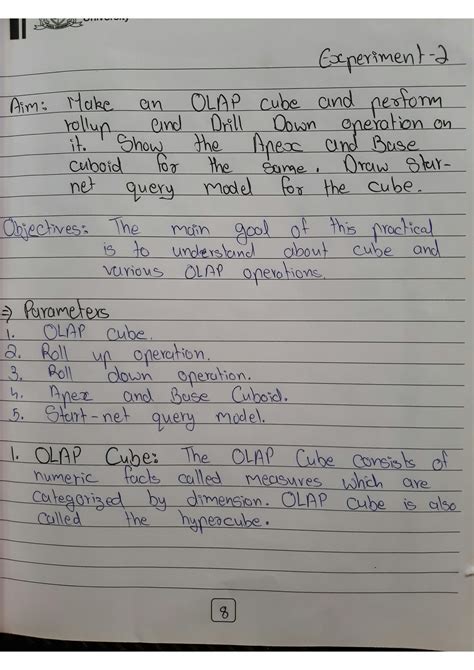 University
Experiment-2
Aim: Make an OLAP cube and perform
rollup and Drill Down operation on
it. Show the Apex and Base
cuboid for the same. Draw Star-
net query model for the cube.
Objectives: The main goal of this practical
is to understand about cube and
various OLAP operations.
⇒ Parameters
1. OLAP cube.
2. Roll up operation.
3. Roll down operation.
4. Apex and Base Cuboid.
5. Start-net query model.
1. OLAP Cube: The OLAP Cube consists of
numeric facts called measures which are
categorized by dimension. OLAP cube is also
called the hypercube.
8